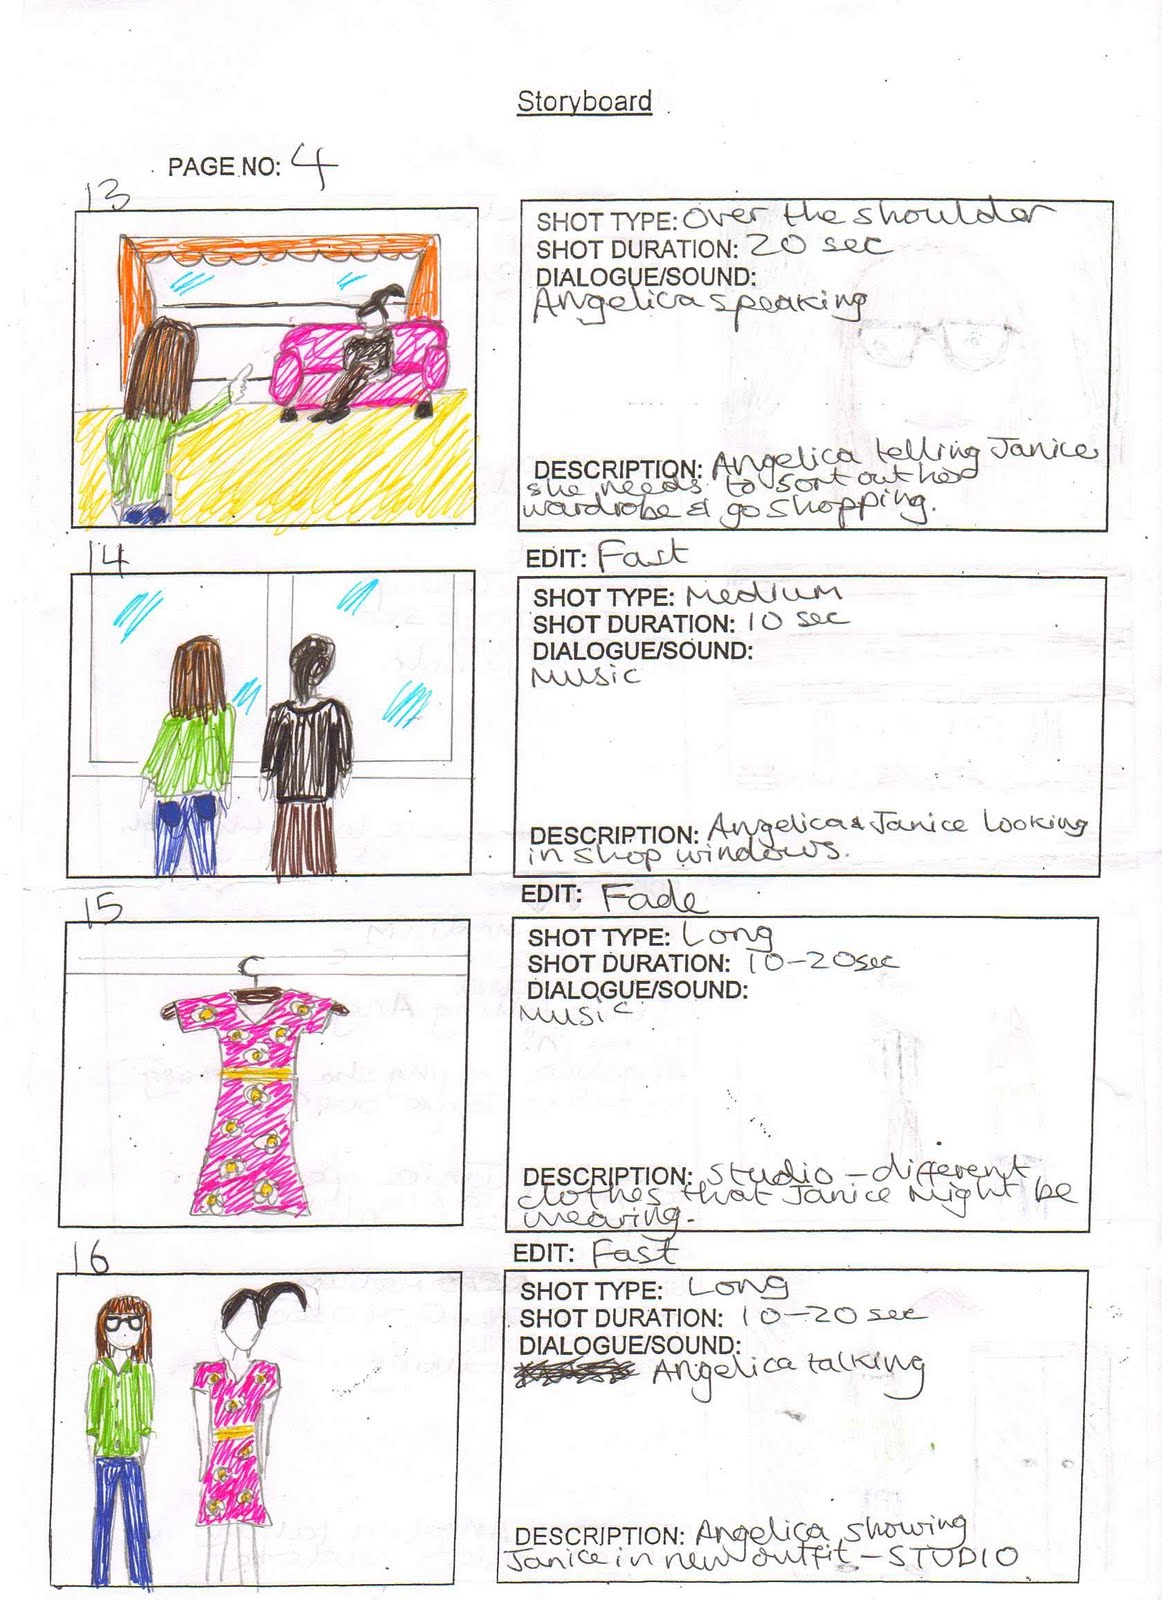 Storyboard
PAGE NO: 4
13
SHOT TYPE: Over the shoulder
SHOT DURATION: 20 sec
DIALOGUE/SOUND:
Angelica speaking
DESCRIPTION: Angelica telling Janice
she needs to sort out her
wardrobe & go shopping.
EDIT: Fast
14
SHOT TYPE: Medium
SHOT DURATION: 10 sec
DIALOGUE/SOUND:
Music
DESCRIPTION: Angelica & Janice looking
in shop windows.
EDIT: Fade
15
SHOT TYPE: Long
SHOT DURATION: 10-20sec
DIALOGUE/SOUND:
Music
DESCRIPTION: Studio - different
clothes that Janice Might be
wearing.
EDIT: Fast
16
SHOT TYPE: Long
SHOT DURATION: 10-20 sec
DIALOGUE/SOUND:
Angelica talking
DESCRIPTION: Angelica showing
Janice in new outfit - STUDIO